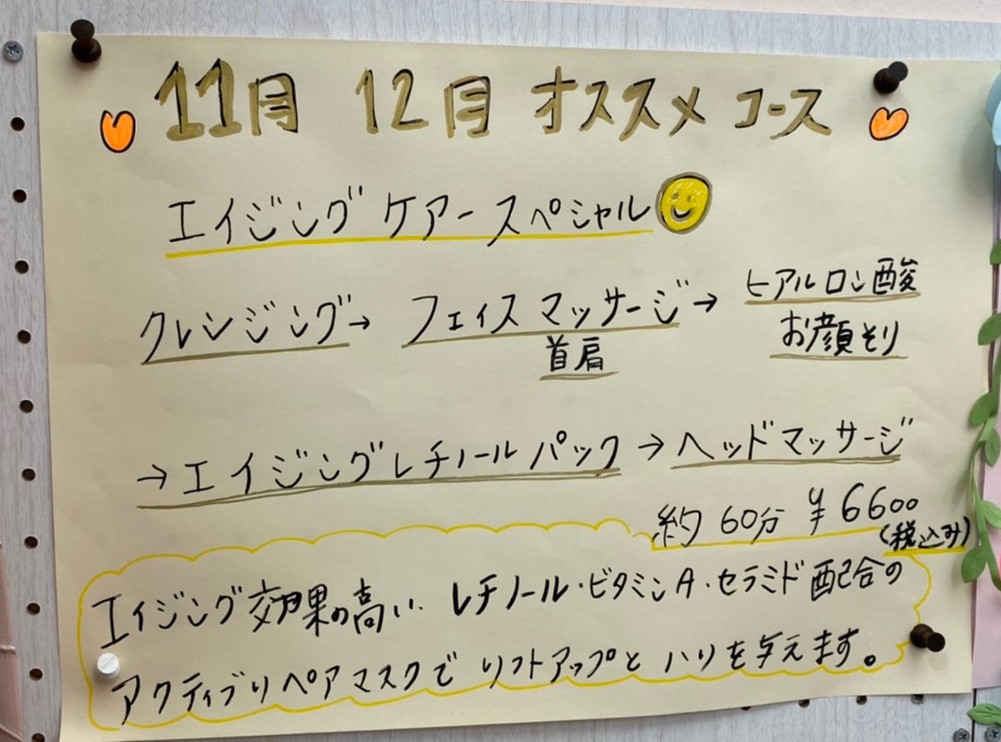 11月 12月 オススメ コース
エイジング ケアースペシャル
クレンジング→ フェイスマッサージ→ ヒアルロン酸
首肩 お顔そり
→エイジングレチノールパック→ヘッドマッサージ
約60分 ¥6600
(税込み)
エイジング効果の高い、レチノール・ビタミンA・セラミド配合の
アクティブリペアマスクでリフトアップとハリを与えます。